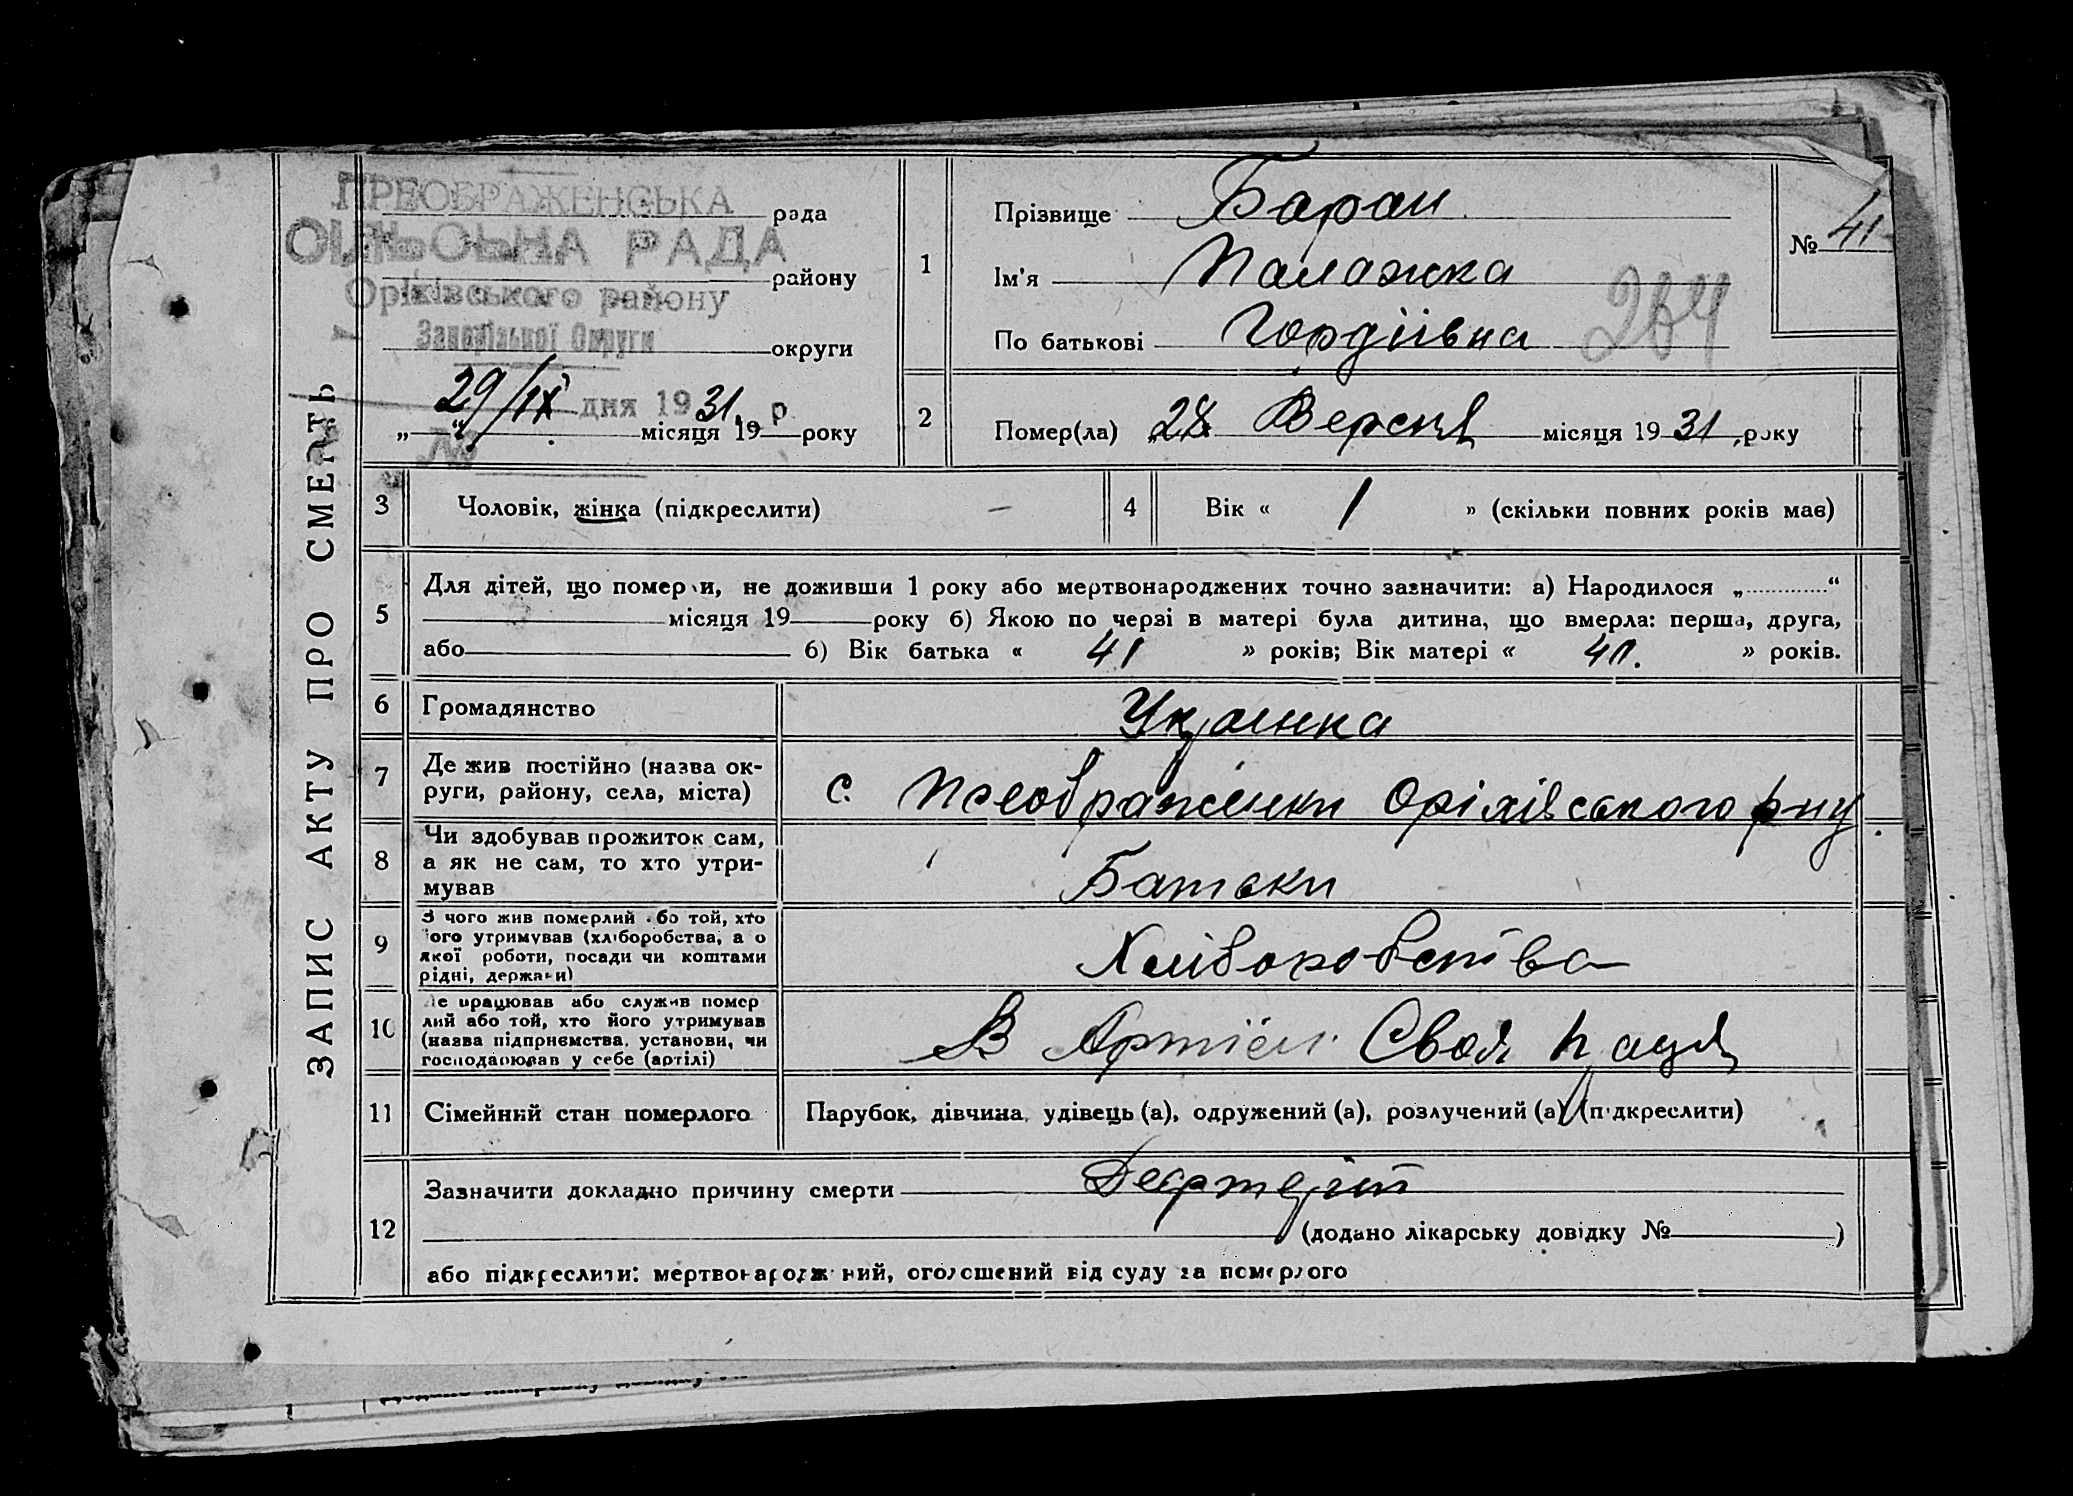 ЗАПИС АКТУ ПРО СМЕРТЬ
ПРЕОБРАЖЕНСЬКА
рада
СІЛЬСЬКА РАДА
району
Оріхівського району
Запорізької Округи
округи
29/IX дня 1931 р.
„ “ місяця 19 року
№
1
Прізвище Баран
Ім'я Палажка
По батькові Гордіївна
264
№ 41
2
Помер(ла) 28 Версня місяця 1931 року
3
Чоловік, жінка (підкреслити)
4
Вік « 1 » (скільки повних років має)
5
Для дітей, що померли, не доживши 1 року або мертвонароджених точно зазначити: а) Народилося „ “
місяця 19 року б) Якою по черзі в матері була дитина, що вмерла: перша, друга,
або б) Вік батька « 41 » років; Вік матері « 40. » років.
6
Громадянство
Украинка
7
Де жив постійно (назва ок-
руги, району, села, міста)
с. Преображенки Оріхівського рну.
8
Чи здобував прожиток сам,
а як не сам, то хто утри-
мував
Батьки
9
З чого жив померлий або той, хто
його утримував (хліборобства, а о
якої роботи, посади чи коштами
рідні, держави)
Хліборобства
10
Де працював або служив помер
лий або той, хто його утримував
(назва підприємства, установи, чи
господарював у себе (артілі)
В Артілі Своя Праця
11
Сімейний стан померлого
Парубок, дівчина, удівець (а), одружений (а), розлучений (а) (підкреслити)
12
Зазначити докладно причину смерти
(додано лікарську довідку № )
або підкреслити: мертвонароджений, оголошений від суду за померлого